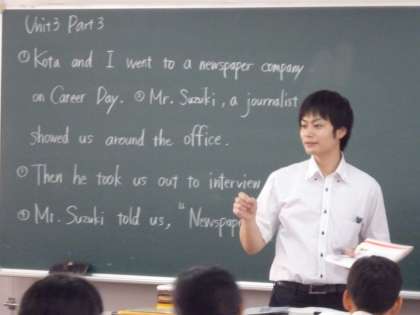 Unit 3 Part 3
① Kota and I went to a newspaper company
on Career Day. ② Mr. Suzuki, a journalist
showed us around the office.
③ Then he took us out to interview
④ Mr. Suzuki told us, "Newspap